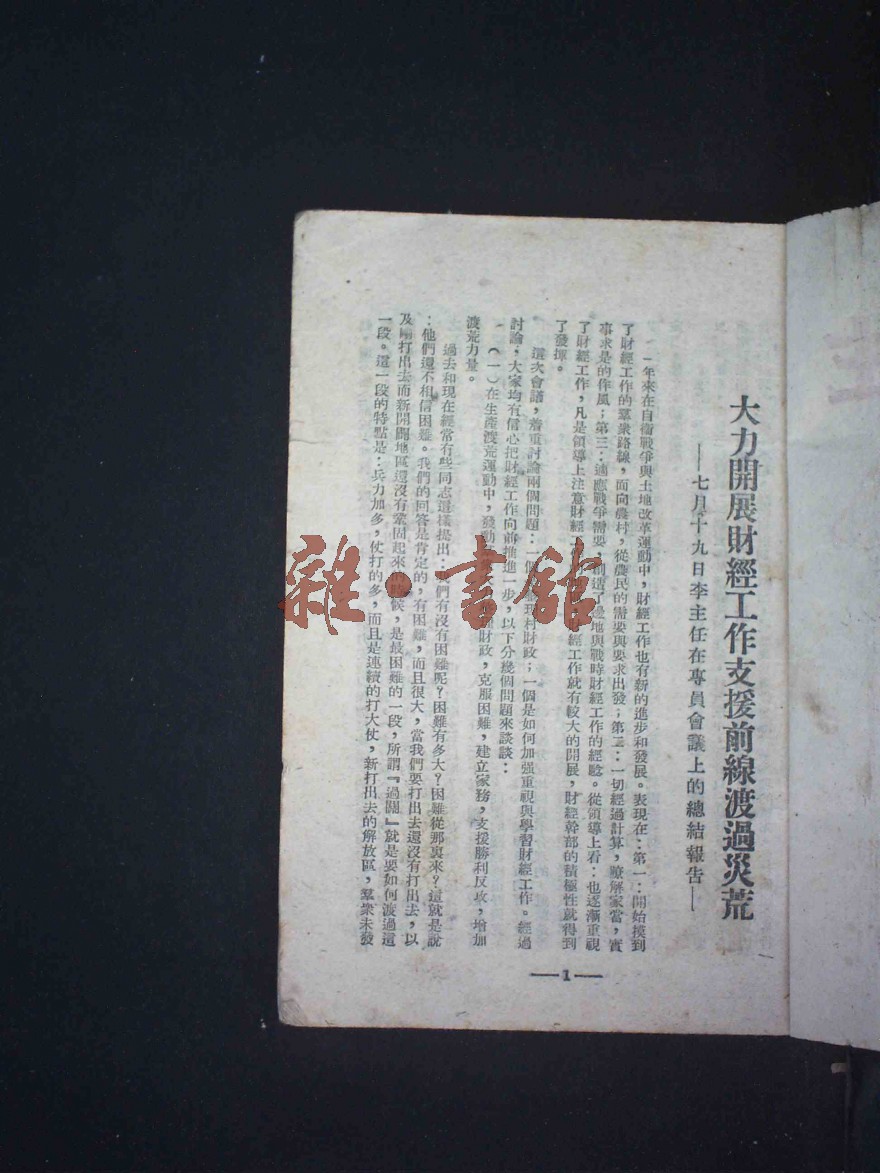 大力開展財經工作支援前線渡過災荒
——七月十九日李主任在專員會議上的總結報告——
一年來在自衞戰爭與土地改革運動中，財經工作也有新的進步和發展。表現在：第一：開始摸到
了財經工作的羣衆路線，面向農村，從農民的需要與要求出發；第二：一切經過計算，瞭解家當，實
事求是的作風；第三：適應戰爭需要，創造了邊地與戰時財經工作的經驗。從領導上看：也逐漸重視
了財經工作，凡是領導上注意財經工 財經工作就有較大的開展，財經幹部的積極性就得到
了發揮。
這次會議，着重討論兩個問題：一個 理村財政；一個是如何加强重視與學習財經工作。經過
討論，大家均有信心把財經工作向前推進一步，以下分幾個問題來談談：
（一）在生產渡荒運動中，發動 財政，克服困難，建立家務，支援勝利反攻，增加
渡荒力量。
過去和現在經常有些同志這樣提出：我們有沒有困難呢？困難有多大？困難從那裏來？這就是說
：他們還不相信困難。我們的回答是肯定的，有困難，而且很大，當我們要打出去還沒有打出去，以
及剛打出去而新開闢地區還沒有鞏固起來的時候，是最困難的一段，所謂『過關』就是要如何渡過這
一段。這一段的特點是：兵力加多，仗打的多，而且是連續的打大仗，新打出去的解放區，羣衆未發
—1—
雜·書館